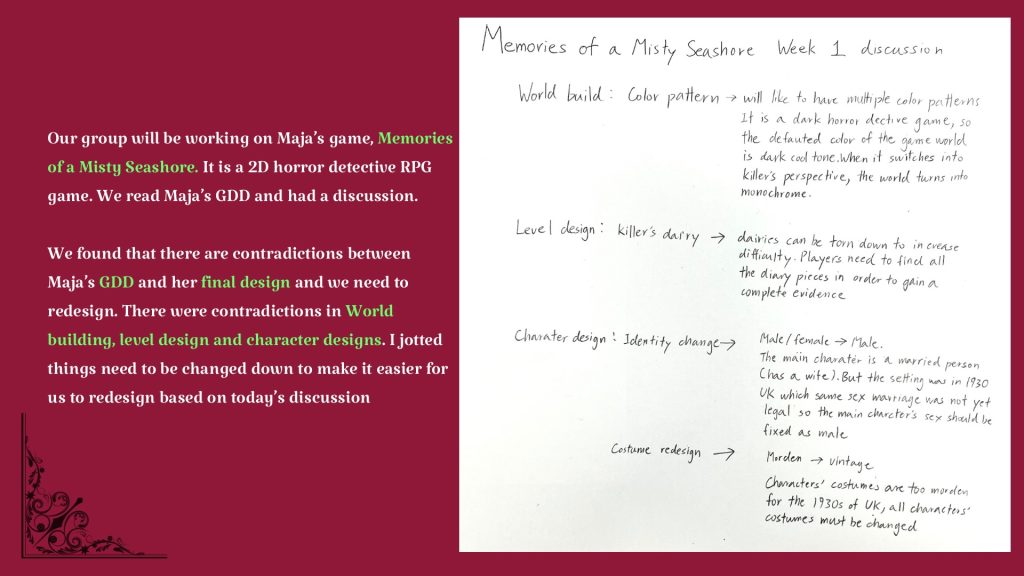 Our group will be working on Maja's game, Memories
of a Misty Seashore. It is a 2D horror detective RPG
game. We read Maja's GDD and had a discussion.
We found that there are contradictions between
Maja's GDD and her final design and we need to
redesign. There were contradictions in World
building, level design and character designs. I jotted
things need to be changed down to make it easier for
us to redesign based on today's discussion
Memories of a Misty Seashore Week 1 discussion
World build: Color pattern → will like to have multiple color patterns
It is a dark horror dective game, so
the defauted color of the game world
is dark cool tone. When it switches into
killer's perspective, the world turns into
monochrome.
Level design: Killer's dairy → dairies can be torn down to increase
difficulty. Players need to find all
the diary pieces in order to gain a
complete evidence
Charater design: Identity change → Male/female → Male.
The main charater is a married person
(has a wife). But the setting was in 1930
UK which same sex marriage was not yet
legal so the main charcter's sex should be
fixed as male
Costume redesign → Morden → vintage
Characters' costumes are too morden
for the 1930s of UK, all characters'
costumes must be changed